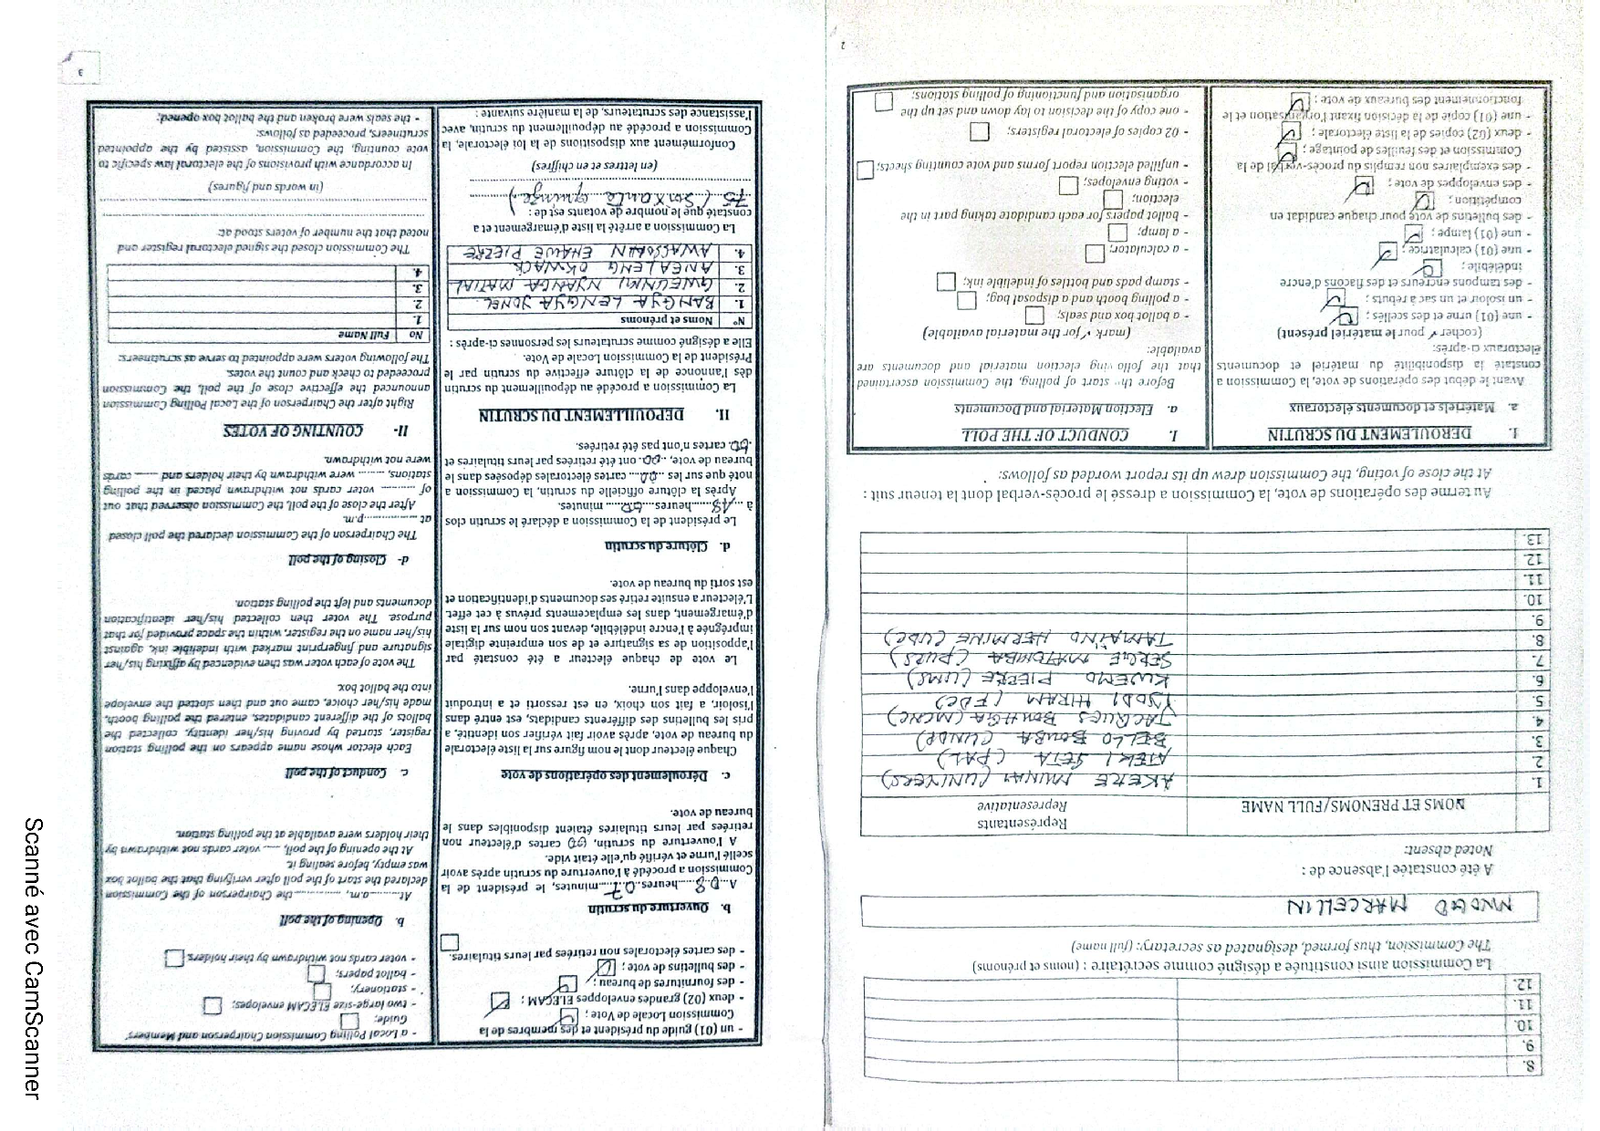 8.
9.
10.
11.
12.
La Commission ainsi constituée a désigné comme secrétaire : (noms et prénoms)
The Commission, thus formed, designated as secretary: (full name)
MARCELLIN
A été constatée l'absence de :
Noted absent:
NOMS ET PRENOMS/FULL NAME
Représentants
Representative
1. AKERE MUNAH (UNIVERS)
2. ATEKI SETA (PAL)
3. BELLO BOUBA (UNDP)
4. JACQUES BOUHGA (MCNC)
5. IYODI HIRAM (FDC)
6. KWEMO PIERRE (UMS)
7. SERGE MATOMBA (PURS)
8. HERMINE (UDC)
9.
10.
11.
12.
13.
Au terme des opérations de vote, la Commission a dressé le procès-verbal dont la teneur suit :
At the close of voting, the Commission drew up its report worded as follows:
I. DEROULEMENT DU SCRUTIN
a. Matériels et documents électoraux
Avant le début des opérations de vote, la Commission a
constaté la disponibilité du matériel et documents
électoraux ci-après:
(cocher ✓ pour le matériel présent)
- une (01) urne et des scellés ;
- un isoloir et un sac à rebuts ;
- des tampons encreurs et des flacons d'encre
indélébile ;
- une (01) calculatrice ;
- une (01) lampe ;
- des bulletins de vote pour chaque candidat en
compétition ;
- des enveloppes de vote ;
- des exemplaires non remplis du procès-verbal de la
Commission et des feuilles de pointage ;
- deux (02) copies de la liste électorale ;
- une (01) copie de la décision fixant l'organisation et le
fonctionnement des bureaux de vote ;
I. CONDUCT OF THE POLL
a. Election Material and Documents
Before the start of polling, the Commission ascertained
that the following election material and documents are
available:
(mark ✓ for the material available)
- a ballot box and seals;
- a polling booth and a disposal bag;
- stamp pads and bottles of indelible ink;
- a calculator;
- a lamp;
- ballot papers for each candidate taking part in the
election;
- voting envelopes;
- unfilled election report forms and vote counting sheets;
- 02 copies of electoral registers;
- one copy of the decision to lay down and set up the
organisation and functioning of polling stations;
2
- un (01) guide du président et des membres de la
Commission Locale de Vote ;
- deux (02) grandes enveloppes ELECAM ;
- des fournitures de bureau ;
- des bulletins de vote ;
- des cartes électorales non retirées par leurs titulaires.
b. Ouverture du scrutin
A 08 heures 07 minutes, le président de la
Commission a procédé à l'ouverture du scrutin après avoir
scellé l'urne et vérifié qu'elle était vide.
A l'ouverture du scrutin, 00 cartes d'électeur non
retirées par leurs titulaires étaient disponibles dans le
bureau de vote.
c. Déroulement des opérations de vote
Chaque électeur dont le nom figure sur la liste électorale
du bureau de vote, après avoir fait vérifier son identité, a
pris les bulletins des différents candidats, est entré dans
l'isoloir, a fait son choix, en est ressorti et a introduit
l'enveloppe dans l'urne.
Le vote de chaque électeur a été constaté par
l'apposition de sa signature et de son empreinte digitale
imprégnée à l'encre indélébile, devant son nom sur la liste
d'émargement, dans les emplacements prévus à cet effet.
L'électeur a ensuite retiré ses documents d'identification et
est sorti du bureau de vote.
d. Clôture du scrutin
Le président de la Commission a déclaré le scrutin clos
à 18 heures 00 minutes.
Après la clôture officielle du scrutin, la Commission a
noté que sur les 00 cartes électorales déposées dans le
bureau de vote, 00 ont été retirées par leurs titulaires et
00 cartes n'ont pas été retirées.
II. DEPOUILLEMENT DU SCRUTIN
La Commission a procédé au dépouillement du scrutin
dès l'annonce de la clôture effective du scrutin par le
Président de la Commission Locale de Vote.
Elle a désigné comme scrutateurs les personnes ci-après :
N° Noms et prénoms
1. BANGYA LENGYA YONEL
2. GWEUNMI NYANGA MATIAL
3. ANEALENG OKWACK
4. AWASSOUN EHAWE PIERRE
La Commission a arrêté la liste d'émargement et a
constaté que le nombre de votants est de :
75 (Soixante quinze)
(en lettres et en chiffres)
Conformément aux dispositions de la loi électorale, la
Commission a procédé au dépouillement du scrutin, avec
l'assistance des scrutateurs, de la manière suivante :
- a Local Polling Commission Chairperson and Members'
Guide;
- two large-size ELECAM envelopes;
- stationery;
- ballot papers;
- voter cards not withdrawn by their holders.
b. Opening of the poll
At ........ a.m, ............ the Chairperson of the Commission
declared the start of the poll after verifying that the ballot box
was empty, before sealing it.
At the opening of the poll, ..... voter cards not withdrawn by
their holders were available at the polling station.
c. Conduct of the poll
Each elector whose name appears on the polling station
register, started by proving his/her identity, collected the
ballots of the different candidates, entered the polling booth,
made his/her choice, came out and then slotted the envelope
into the ballot box.
The vote of each voter was then evidenced by affixing his/her
signature and fingerprint marked with indelible ink, against
his/her name on the register, within the space provided for that
purpose. The voter then collected his/her identification
documents and left the polling station.
d- Closing of the poll
The Chairperson of the Commission declared the poll closed
at ..................p.m.
After the close of the poll, the Commission observed that out
of .......... voter cards not withdrawn placed in the polling
stations, ........ were withdrawn by their holders and ....... cards
were not withdrawn.
II- COUNTING OF VOTES
Right after the Chairperson of the Local Polling Commission
announced the effective close of the poll, the Commission
proceeded to check and count the votes.
The following voters were appointed to serve as scrutineers:
No Full Name
1.
2.
3.
4.
The Commission closed the signed electoral register and
noted that the number of voters stood at:
(in words and figures)
In accordance with provisions of the electoral law specific to
vote counting, the Commission, assisted by the appointed
scrutineers, proceeded as follows:
- the seals were broken and the ballot box opened;
3
Scanné avec CamScanner